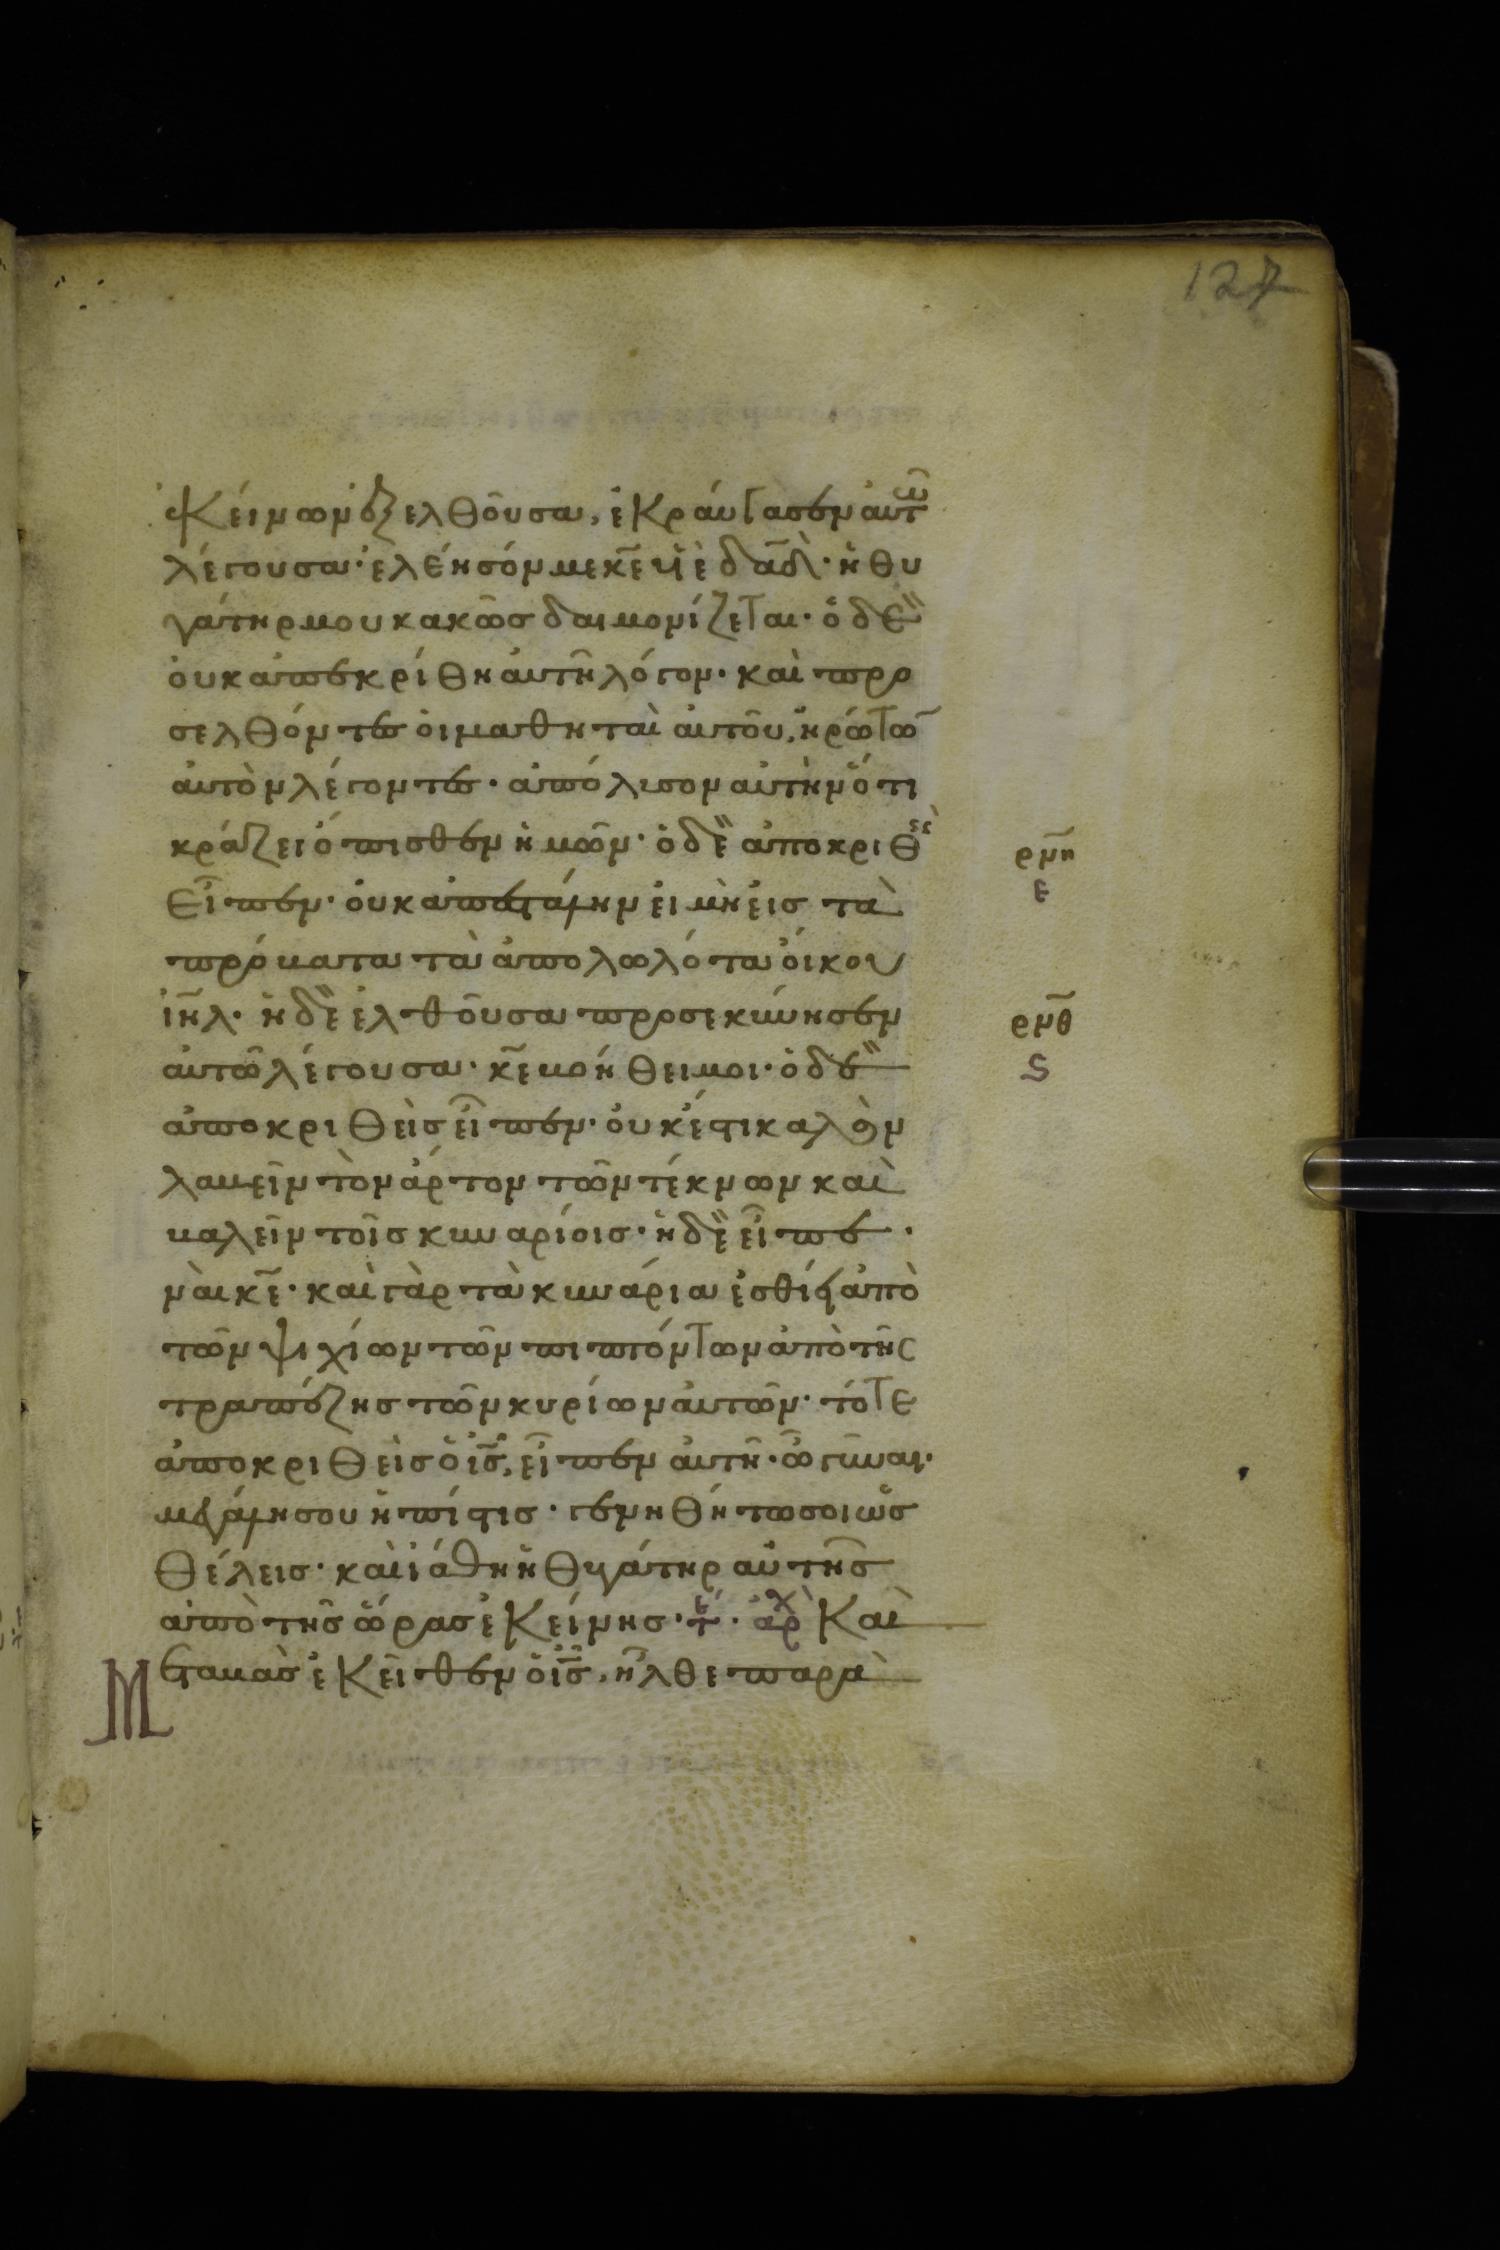 127
ἐκείνων ἐξελθοῦσα, ἐκραύγασεν αὐτῶ
λέγουσα· ἐλέησόν με κ̅ε̅ υἱὲ δα̅δ̅· ἡ θυ
γάτηρ μου κακῶσ δαιμονίζεται· ὁ δὲ
οὐκ ἀπεκρίθη αὐτῆ λόγον· καὶ προ
σελθόντεσ οἱ μαθηταὶ αὐτοῦ, ἠρώτω̅
αὐτὸν λέγοντεσ· ἀπόλυσον αὐτὴν ὅτι
κράζει ὄπισθεν ἡμῶν· ὁ δὲ ἀποκριθεὶς
εἶπεν· οὐκ ἀπεστάλην εἰ μὴ εἰσ τὰ
ρμη
ε
πρόβατα τὰ ἀπολωλότα οἴκου
ἰη̅λ̅· ἡ δὲ ἐλθοῦσα προσεκύνησεν
ρμθ
ς
αὐτῶ λέγουσα· κ̅ε̅ βοήθει μοι· ὁ δὲ
ἀποκριθεὶσ εἶπεν· οὐκ ἔστι καλὸν
λαβεῖν τὸν ἄρτον τῶν τέκνων καὶ
βαλεῖν τοῖσ κυναρίοισ· ἡ δὲ εἶπε·
ναὶ κ̅ε̅· καὶ γὰρ τὰ κυνάρια ἐσθίει ἀπὸ
τῶν ψιχίων τῶν πιπτόντων ἀπὸ τῆς
τραπέζησ τῶν κυρίων αὐτῶν· τότε
ἀποκριθεὶσ ὁ ι̅σ̅, εἶπεν αὐτῆ· ὦ γύναι·
μεγάλη σου ἡ πίστισ· γενηθήτω σοι ὡσ
θέλεισ· καὶ ἰάθη ἡ θυγάτηρ αὐτῆσ
ἀπὸ τῆσ ὥρασ ἐκείνησ· τε· ἀρχ Καὶ
Μεταβὰσ ἐκεῖθεν ὁ ι̅σ̅, ἦλθε παρὰ